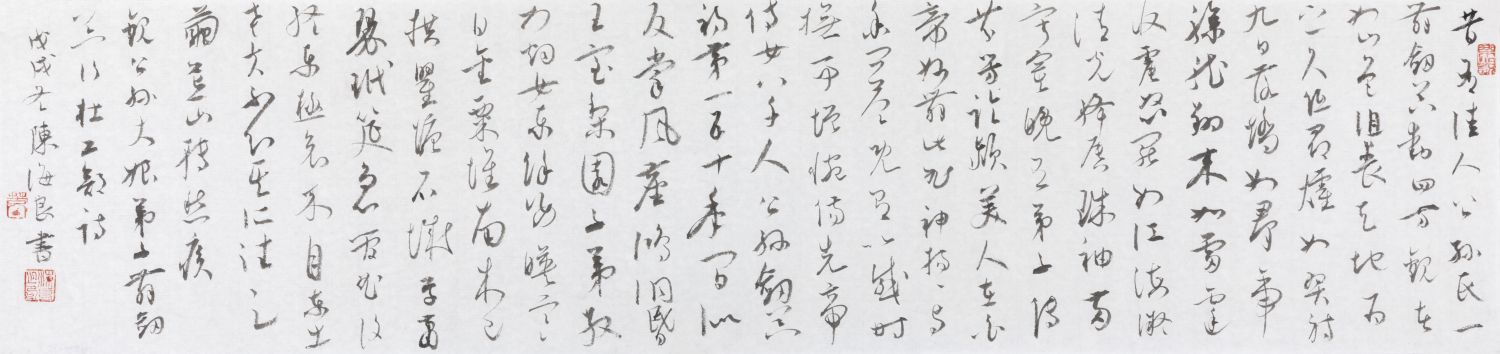 昔有佳人公孫氏一
舞劍器動四方觀者
如山色沮喪天地為
之久低昂㸌如羿射
九日落矯如群帝
驂龍翔來如雷霆
收震怒罷如江海凝
清光絳唇珠袖兩
寂寞晚有弟子傳
芬芳臨潁美人在白
帝妙舞此曲神揚揚與
余問答既有以感時
撫事增惋傷先帝
侍女八千人公孫劍器
初第一五十年間似
反掌風塵澒洞昏
王室梨園子弟散
如煙女樂餘姿映寒
日金粟堆南木已
拱瞿塘石城草蕭
瑟玳筵急管曲復
終樂極哀來月東出
老夫不知其所往足
繭荒山轉愁疾
觀公孫大娘弟子舞劍
器行杜工部詩
戊戌冬陳海良書